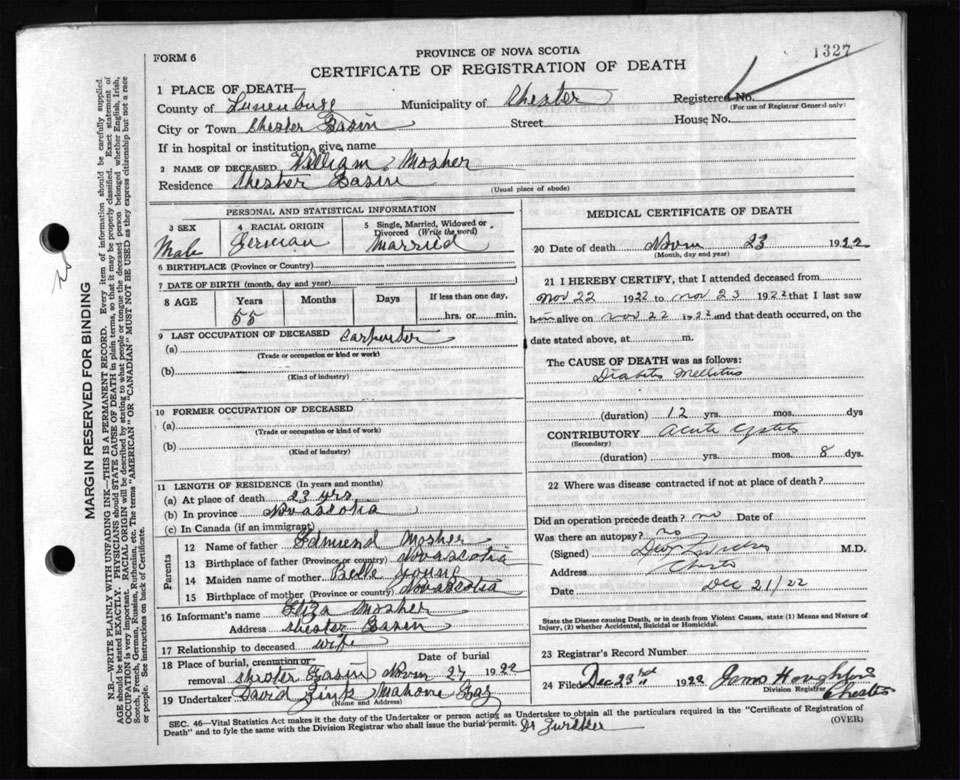 1327
FORM 6
PROVINCE OF NOVA SCOTIA
CERTIFICATE OF REGISTRATION OF DEATH
MARGIN RESERVED FOR BINDING
N.B.—WRITE PLAINLY WITH UNFADING INK—THIS IS A PERMANENT RECORD. Every item of information should be carefully supplied.
AGE should be stated EXACTLY. PHYSICIANS should STATE CAUSE OF DEATH in plain terms, so that it may be properly classified. Exact statement of
OCCUPATION is very important. RACIAL ORIGIN will be described by stating to what people or tongue the deceased person belonged whether English, Irish,
Scotch, French, German, Russian, Ruthenian, etc. The terms "AMERICAN" OR "CANADIAN" MUST NOT BE USED as they express citizenship but not a race
or people. See instructions on back of Certificate.
1 PLACE OF DEATH
County of Lunenburg Municipality of Chester Registered No.
(For use of Registrar General only)
City or Town Chester Basin Street House No.
If in hospital or institution, give name
2 NAME OF DECEASED William Mosher
Residence Chester Basin
(Usual place of abode)
PERSONAL AND STATISTICAL INFORMATION
3 SEX Male
4 RACIAL ORIGIN
5 Single, Married, Widowed or
Divorced (Write the word)
Married
6 BIRTHPLACE (Province or Country)
7 DATE OF BIRTH (month, day and year)
8 AGE Years Months Days If less than one day,
55 hrs. or min.
9 LAST OCCUPATION OF DECEASED
(a) Carpenter
(Trade or occupation or kind or work)
(b)
(Kind of industry)
10 FORMER OCCUPATION OF DECEASED
(a)
(Trade or occupation or kind or work)
(b)
(Kind of industry)
11 LENGTH OF RESIDENCE (In years and months)
(a) At place of death 23 yrs
(b) In province Novascotia
(c) In Canada (if an immigrant)
Parents
12 Name of father Edmund Mosher
13 Birthplace of father (Province or country) Novascotia
14 Maiden name of mother Belle Young
15 Birthplace of mother (Province or country) Novascotia
16 Informant's name Eliza Mosher
Address Chester Basin
17 Relationship to deceased wife
18 Place of burial, cremation or Date of burial
removal Chester Basin Novm 27 1922
19 Undertaker David Zink Mahone Bay
(Name and Address)
MEDICAL CERTIFICATE OF DEATH
20 Date of death Novm 23 1922
(Month, day and year)
21 I HEREBY CERTIFY, that I attended deceased from
Nov 22 1922 to Nov 23 1922 that I last saw
him alive on Nov 22 1922 and that death occurred, on the
date stated above, at m.
The CAUSE OF DEATH was as follows:
Diabetes Mellitus
(duration) 12 yrs. mos. dys
CONTRIBUTORY Acute Cystitis
(Secondary)
(duration) yrs. mos. 8 dys.
22 Where was disease contracted if not at place of death?
Did an operation precede death? no Date of
Was there an autopsy? no
(Signed) M.D.
Address Chester
Dec 21/22
State the Disease causing Death, or in death from Violent Causes, state (1) Means and Nature of
Injury, (2) whether Accidental, Suicidal or Homicidal.
23 Registrar's Record Number
24 Filed Dec 23rd 1922 James Houghton
Division Registrar
Chester
SEC. 46—Vital Statistics Act makes it the duty of the Undertaker or person acting as Undertaker to obtain all the particulars required in the "Certificate of Registration of
Death" and to fyle the same with the Division Registrar who shall issue the burial permit.
(OVER)
Dr